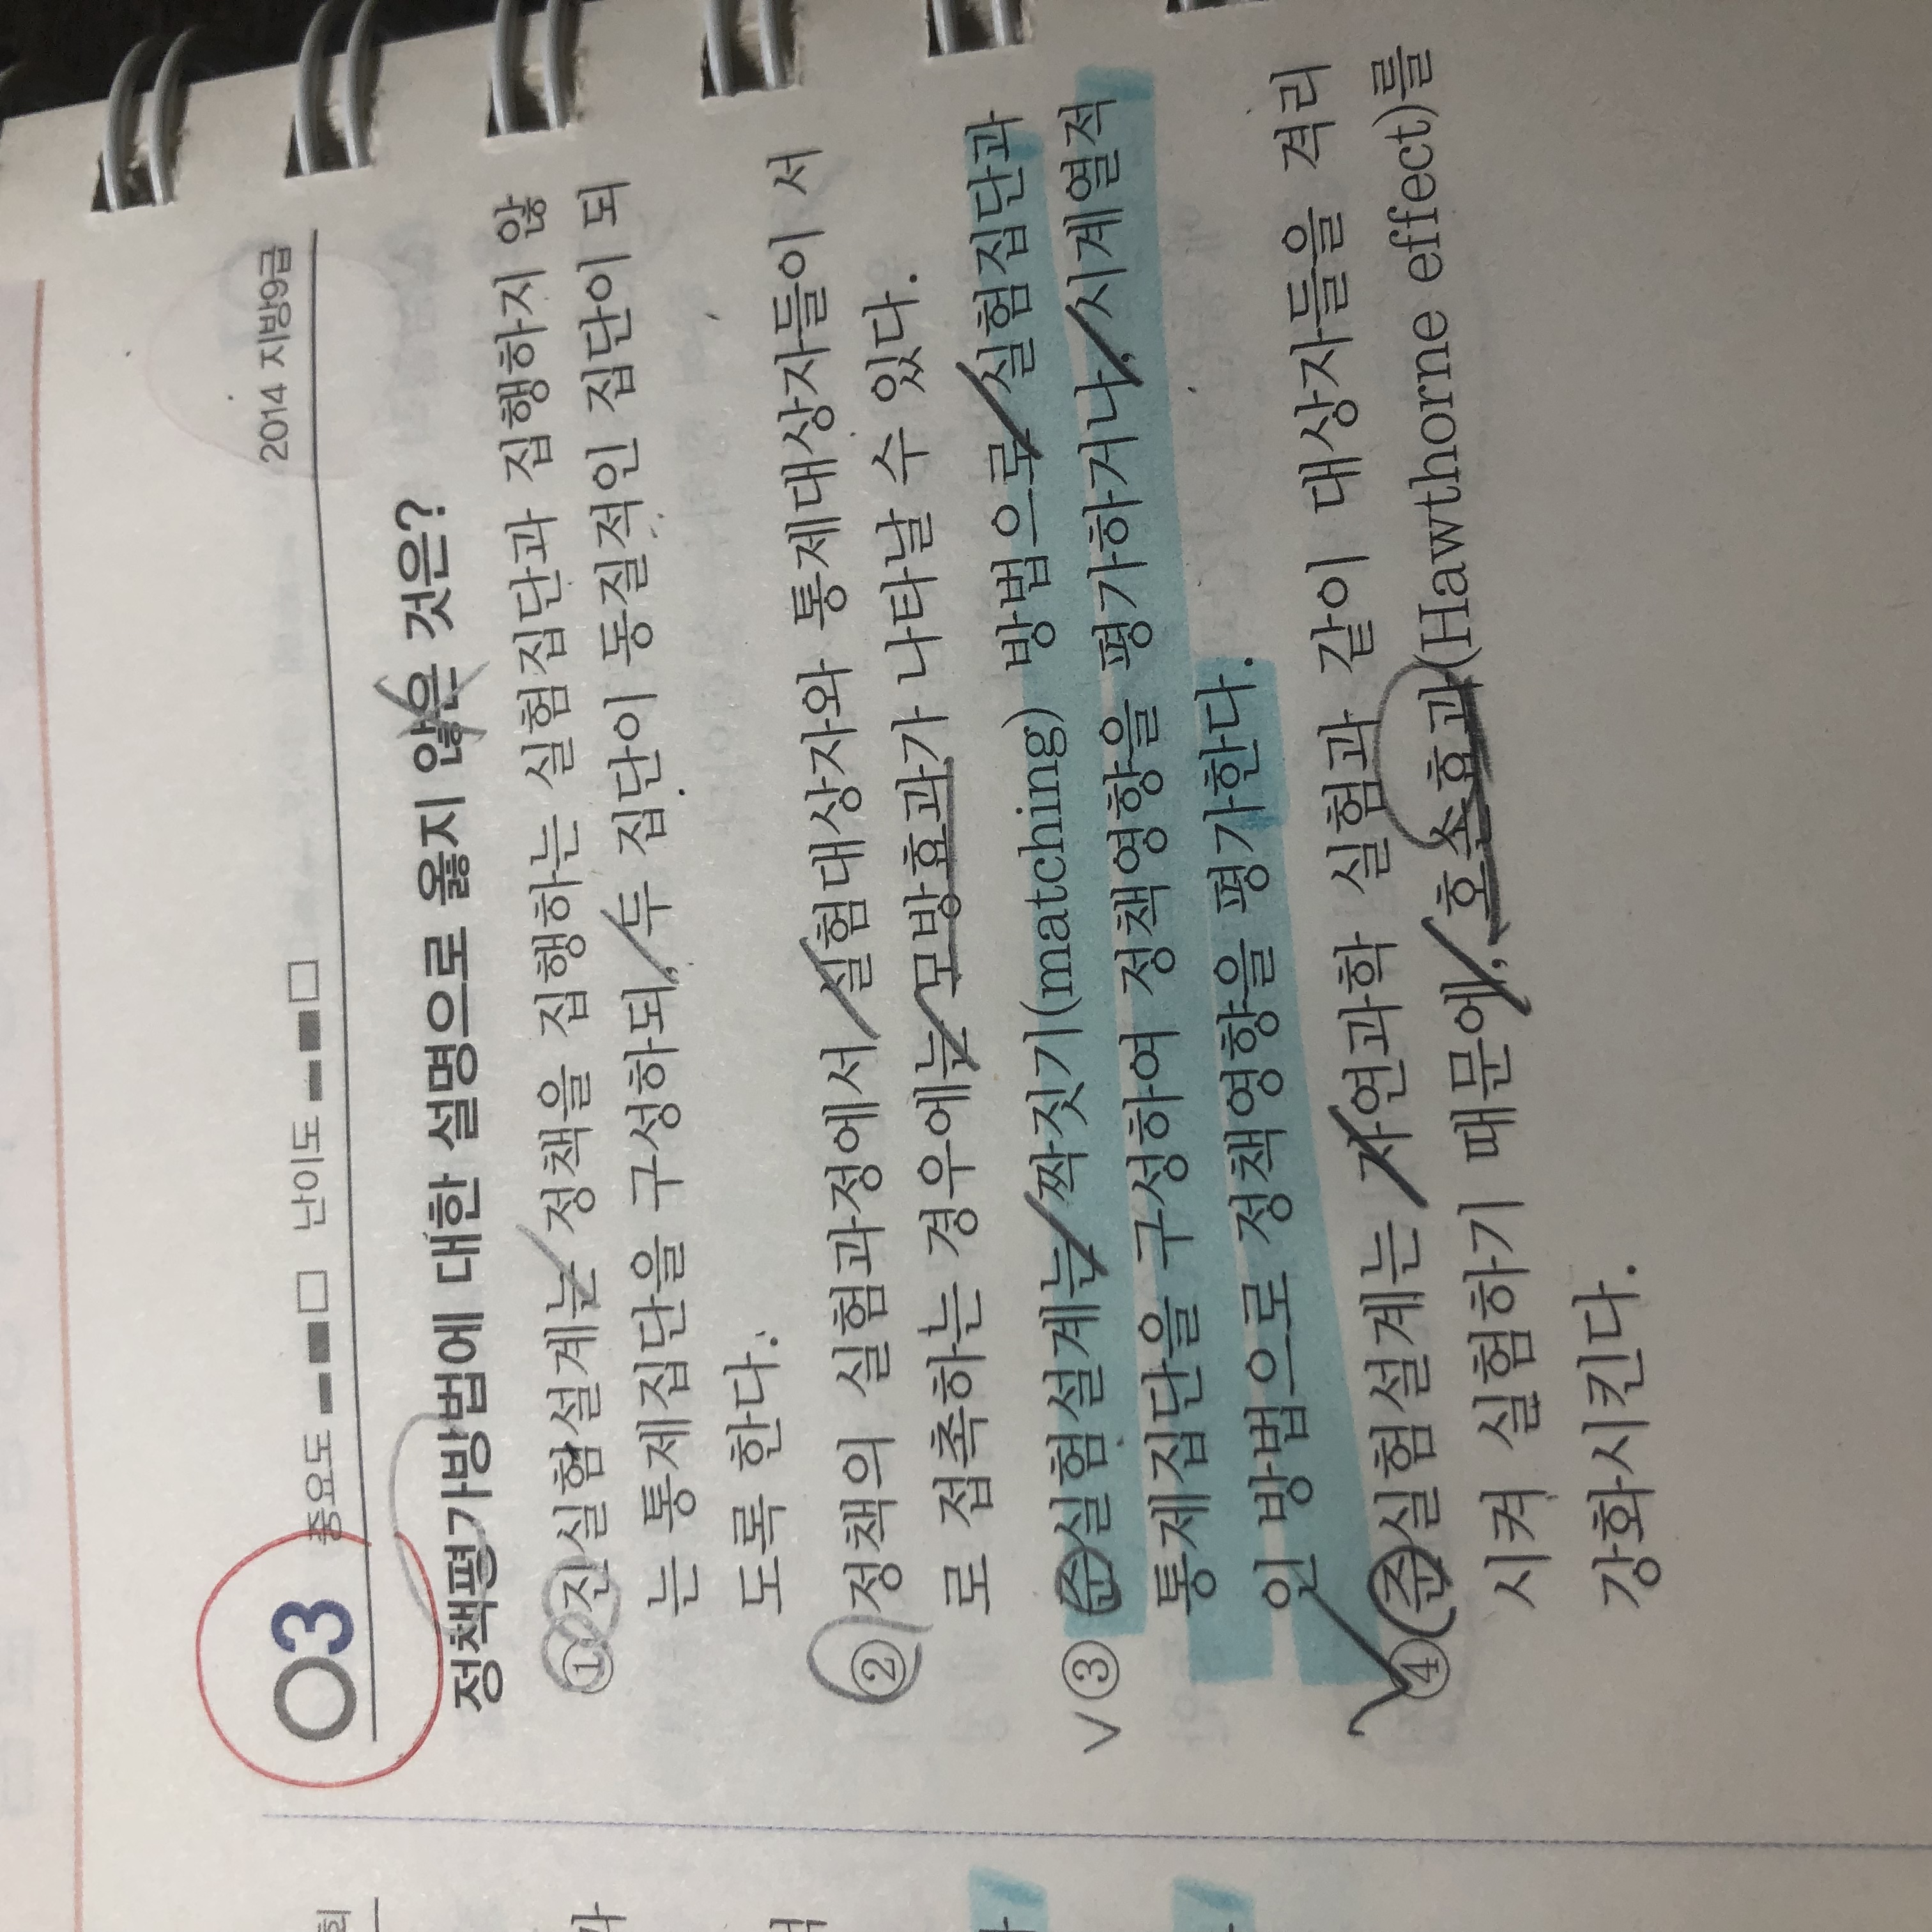 03 중요도 난이도 2014 지방9급
정책평가방법에 대한 설명으로 옳지 않은 것은?
① 진실험설계는 정책을 집행하는 실험집단과 집행하지 않
는 통제집단을 구성하되, 두 집단이 동질적인 집단이 되
도록 한다.
② 정책의 실험과정에서 실험대상자와 통제대상자들이 서
로 접촉하는 경우에는 모방효과가 나타날 수 있다.
V ③ 준실험설계는 짝짓기(matching) 방법으로 실험집단과
통제집단을 구성하여 정책영향을 평가하거나, 시계열적
인 방법으로 정책영향을 평가한다.
④ 준실험설계는 자연과학 실험과 같이 대상자들을 격리
시켜 실험하기 때문에, 호손효과(Hawthorne effect)를
강화시킨다.